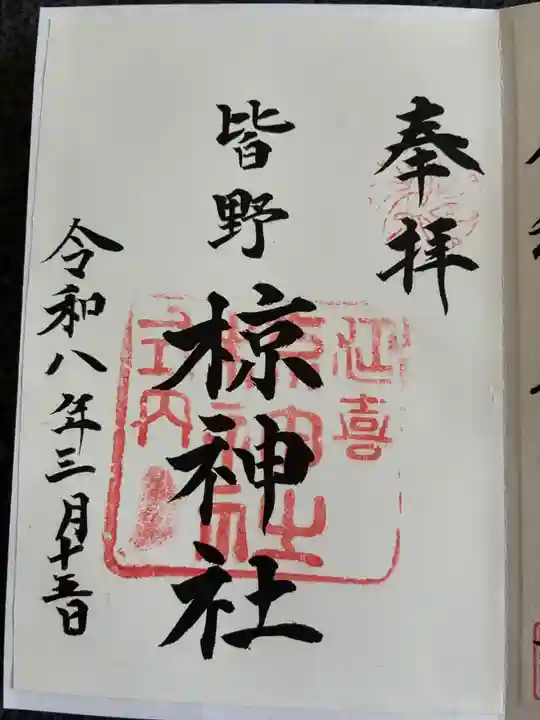 奉拝
皆野
椋神社
延喜
椋神社
式内
令和八年三月十五日